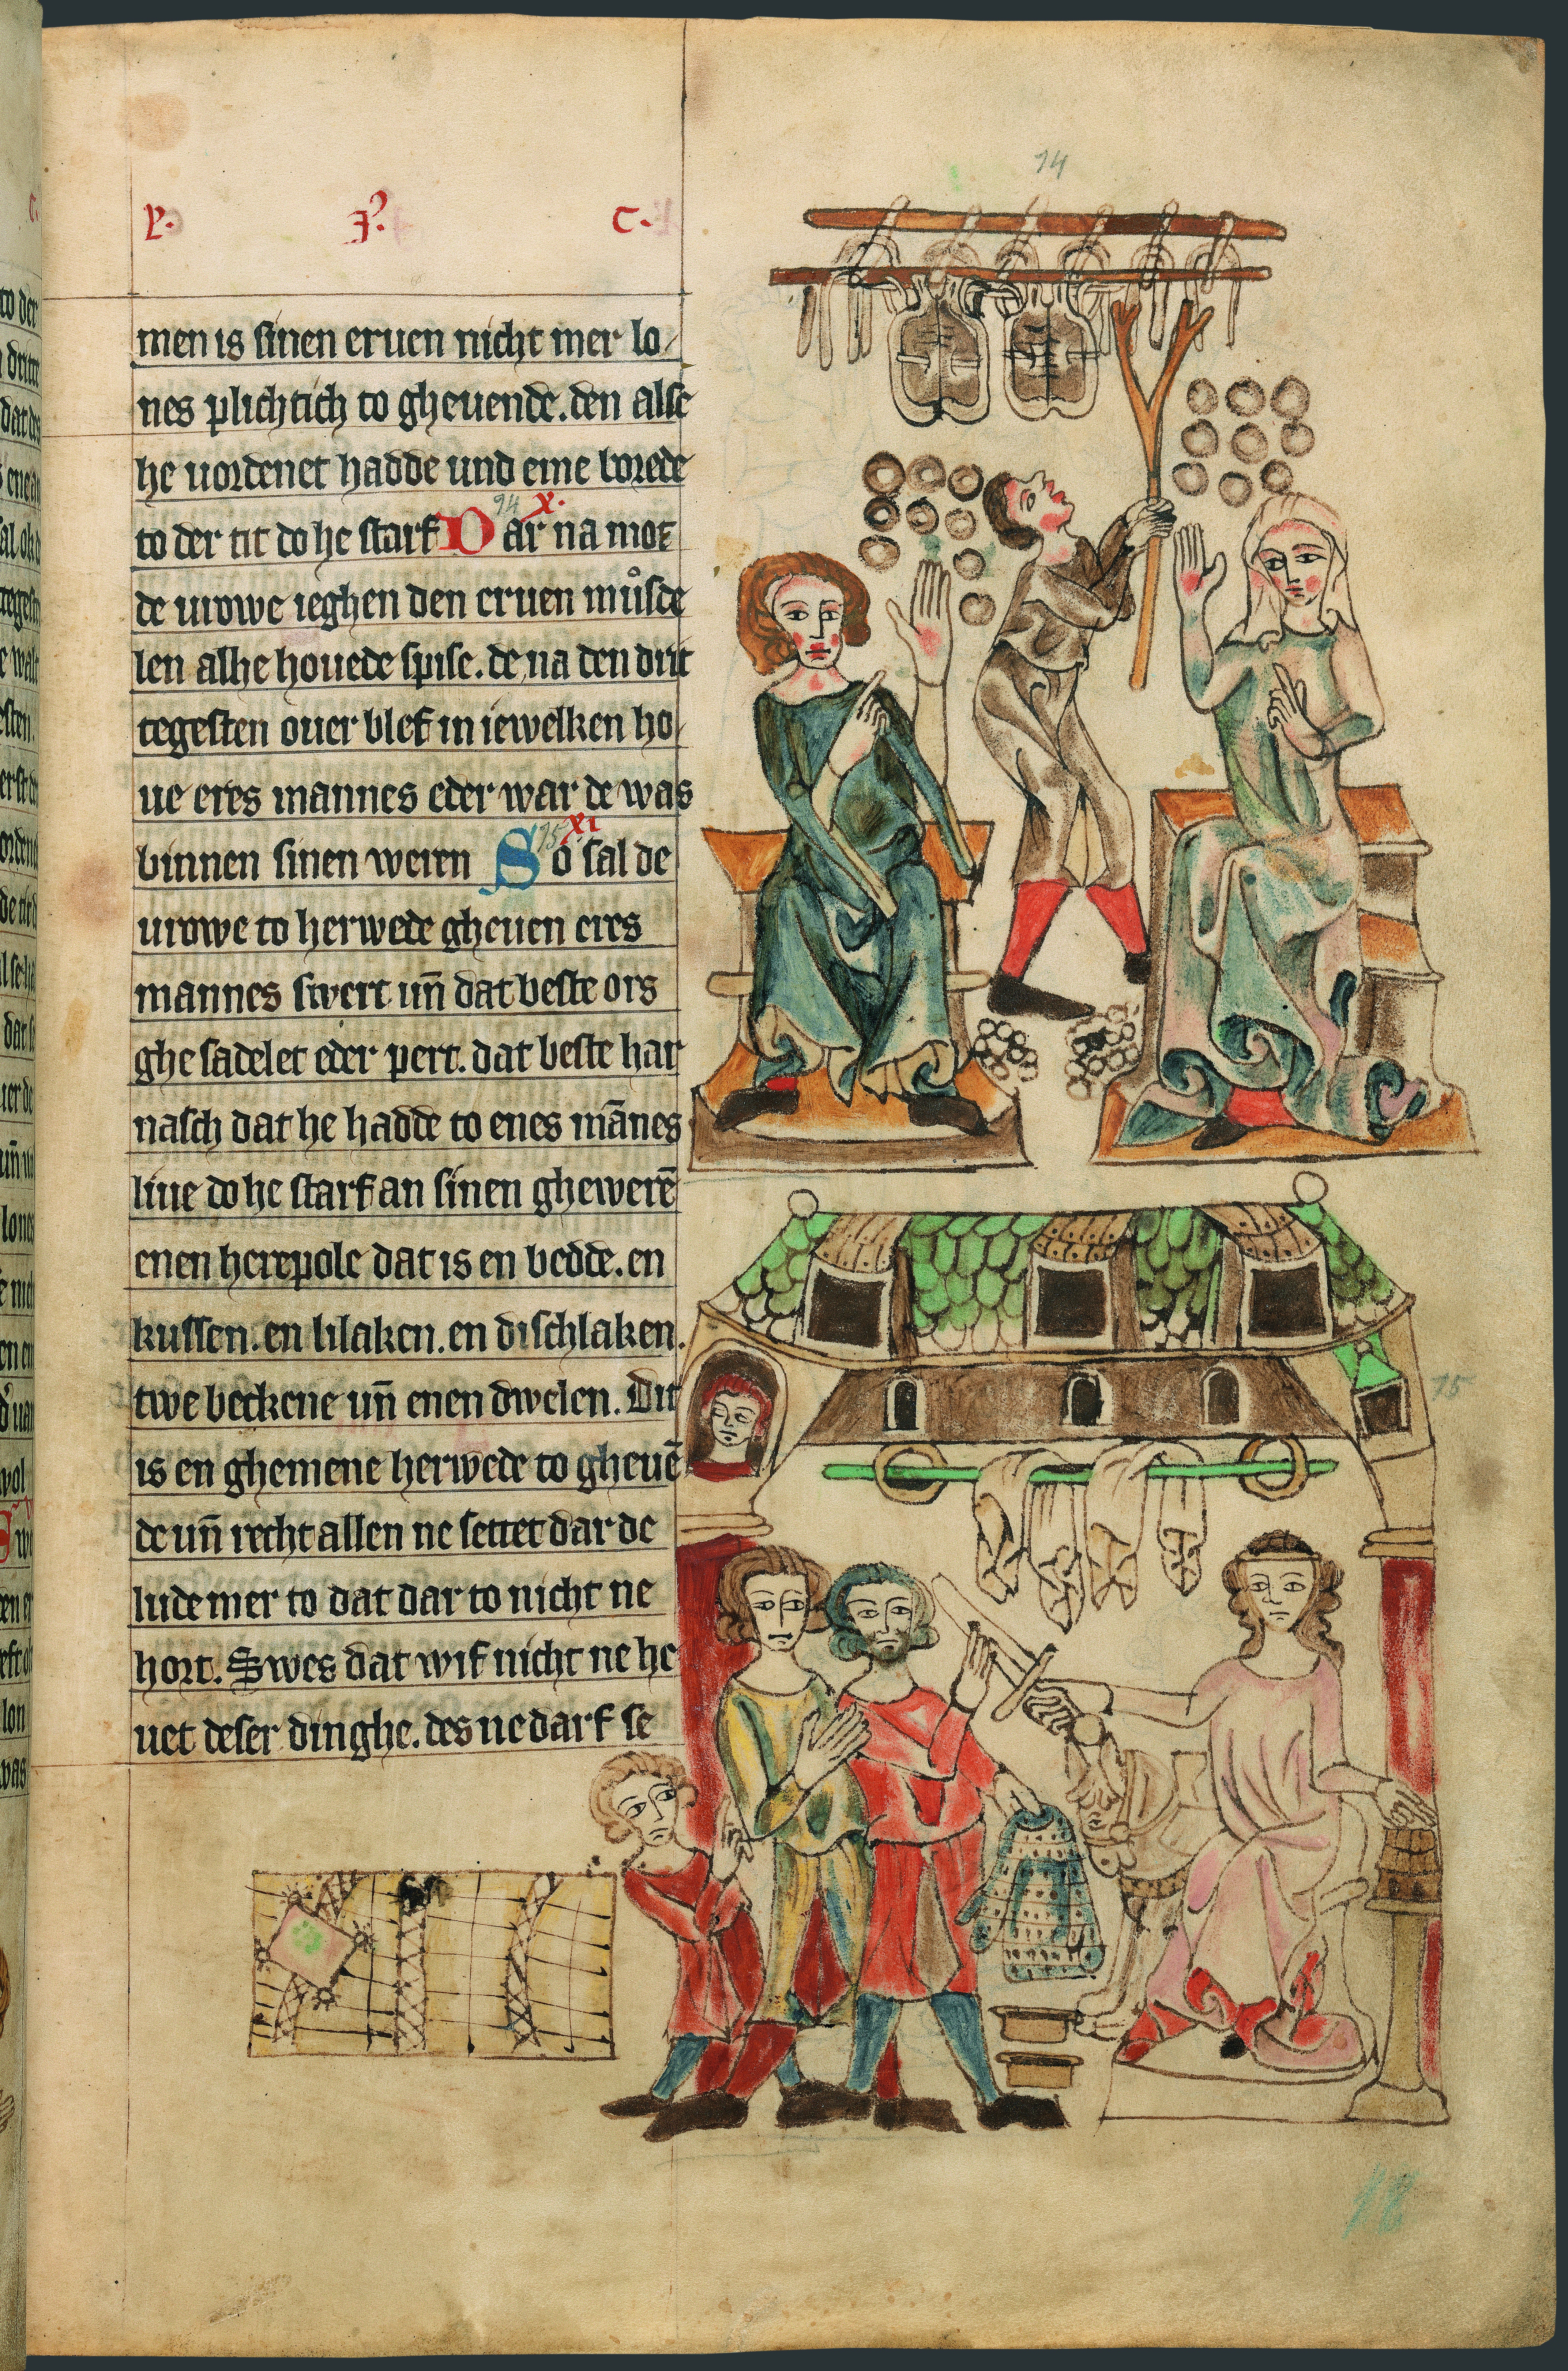 14
P. I. C.
men is sinen eruen nicht mer lo/
nes plichtich to gheuende. den alse
he uordenet hadde und eme borede
to der tit do he starf Dar na mot
94 x.
de urowe ieghen den eruen můsde
len alhe houede spise. de na den drit
tegesten ouer blef in iewelken ho/
ue eres mannes eder war de was
binnen sinen weren So sal de
75 xi
urowe to herwede gheuen eres
mannes swert un̄ dat beste ors
ghe sadelet eder pert. dat beste har
nasch dat he hadde to enes mānes
liue do he starf an sinen ghewerē
enen herepole dat is en bedde. en
kussen. en lilaken. en dischlaken.
twe beckene un̄ enen dwelen. Dit
is en ghemene herwede to gheuē
de un̄ recht allen ne settet dar de
lude mer to dat dar to nicht ne
hort. Swes dat wif nicht ne he
uet deser dinghe. des ne darf se
75